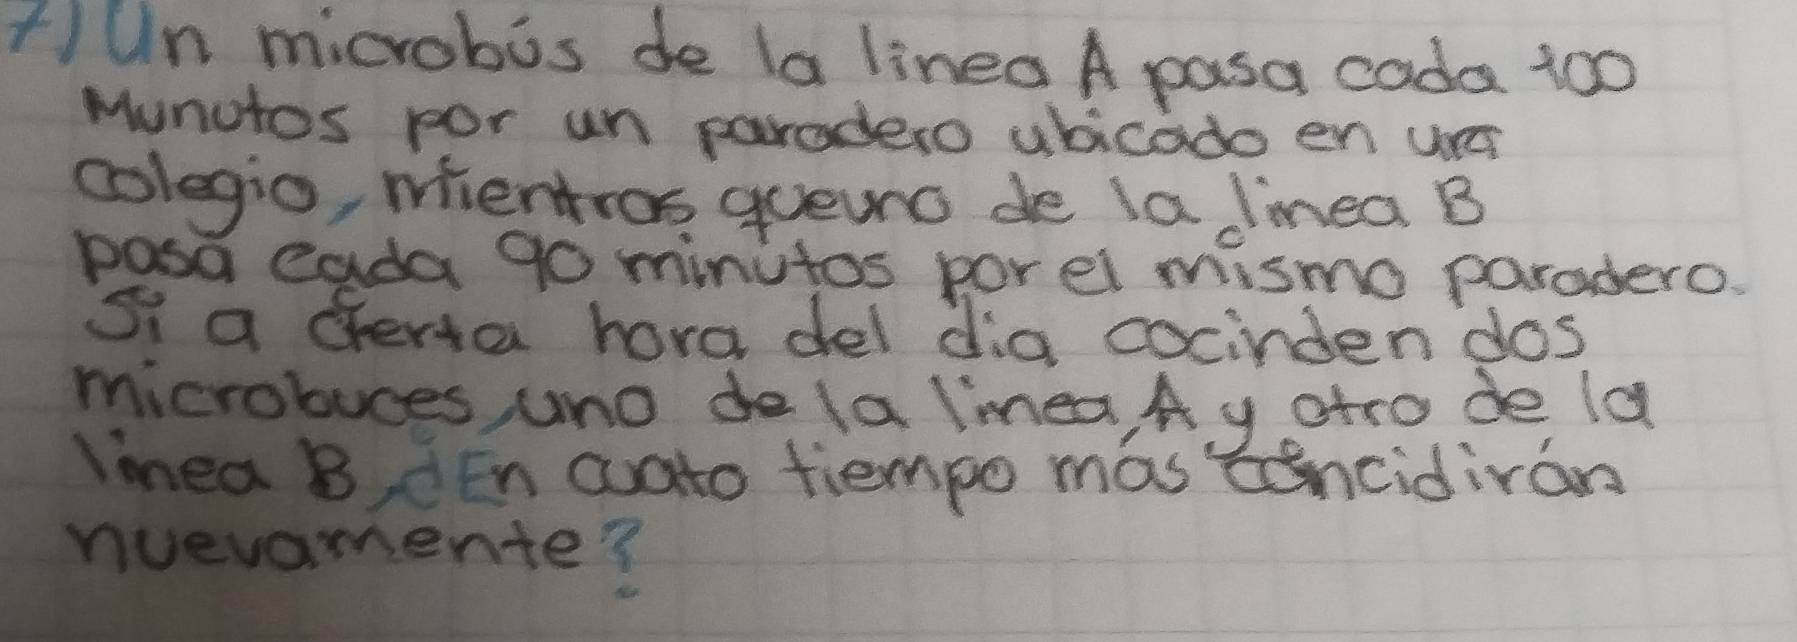 7) Un microbús de la linea A pasa cada 100
Munutos por un paradero ubicado en una
colegio, mientras queuno de la linea B
pasa cada 90 minutos por el mismo paradero.
Si a cierta hora del dia cocinden dos
microbuces, uno de la linea, A y otro de la
linea B, ¿En cuato tiempo más concidirán
nuevamente?